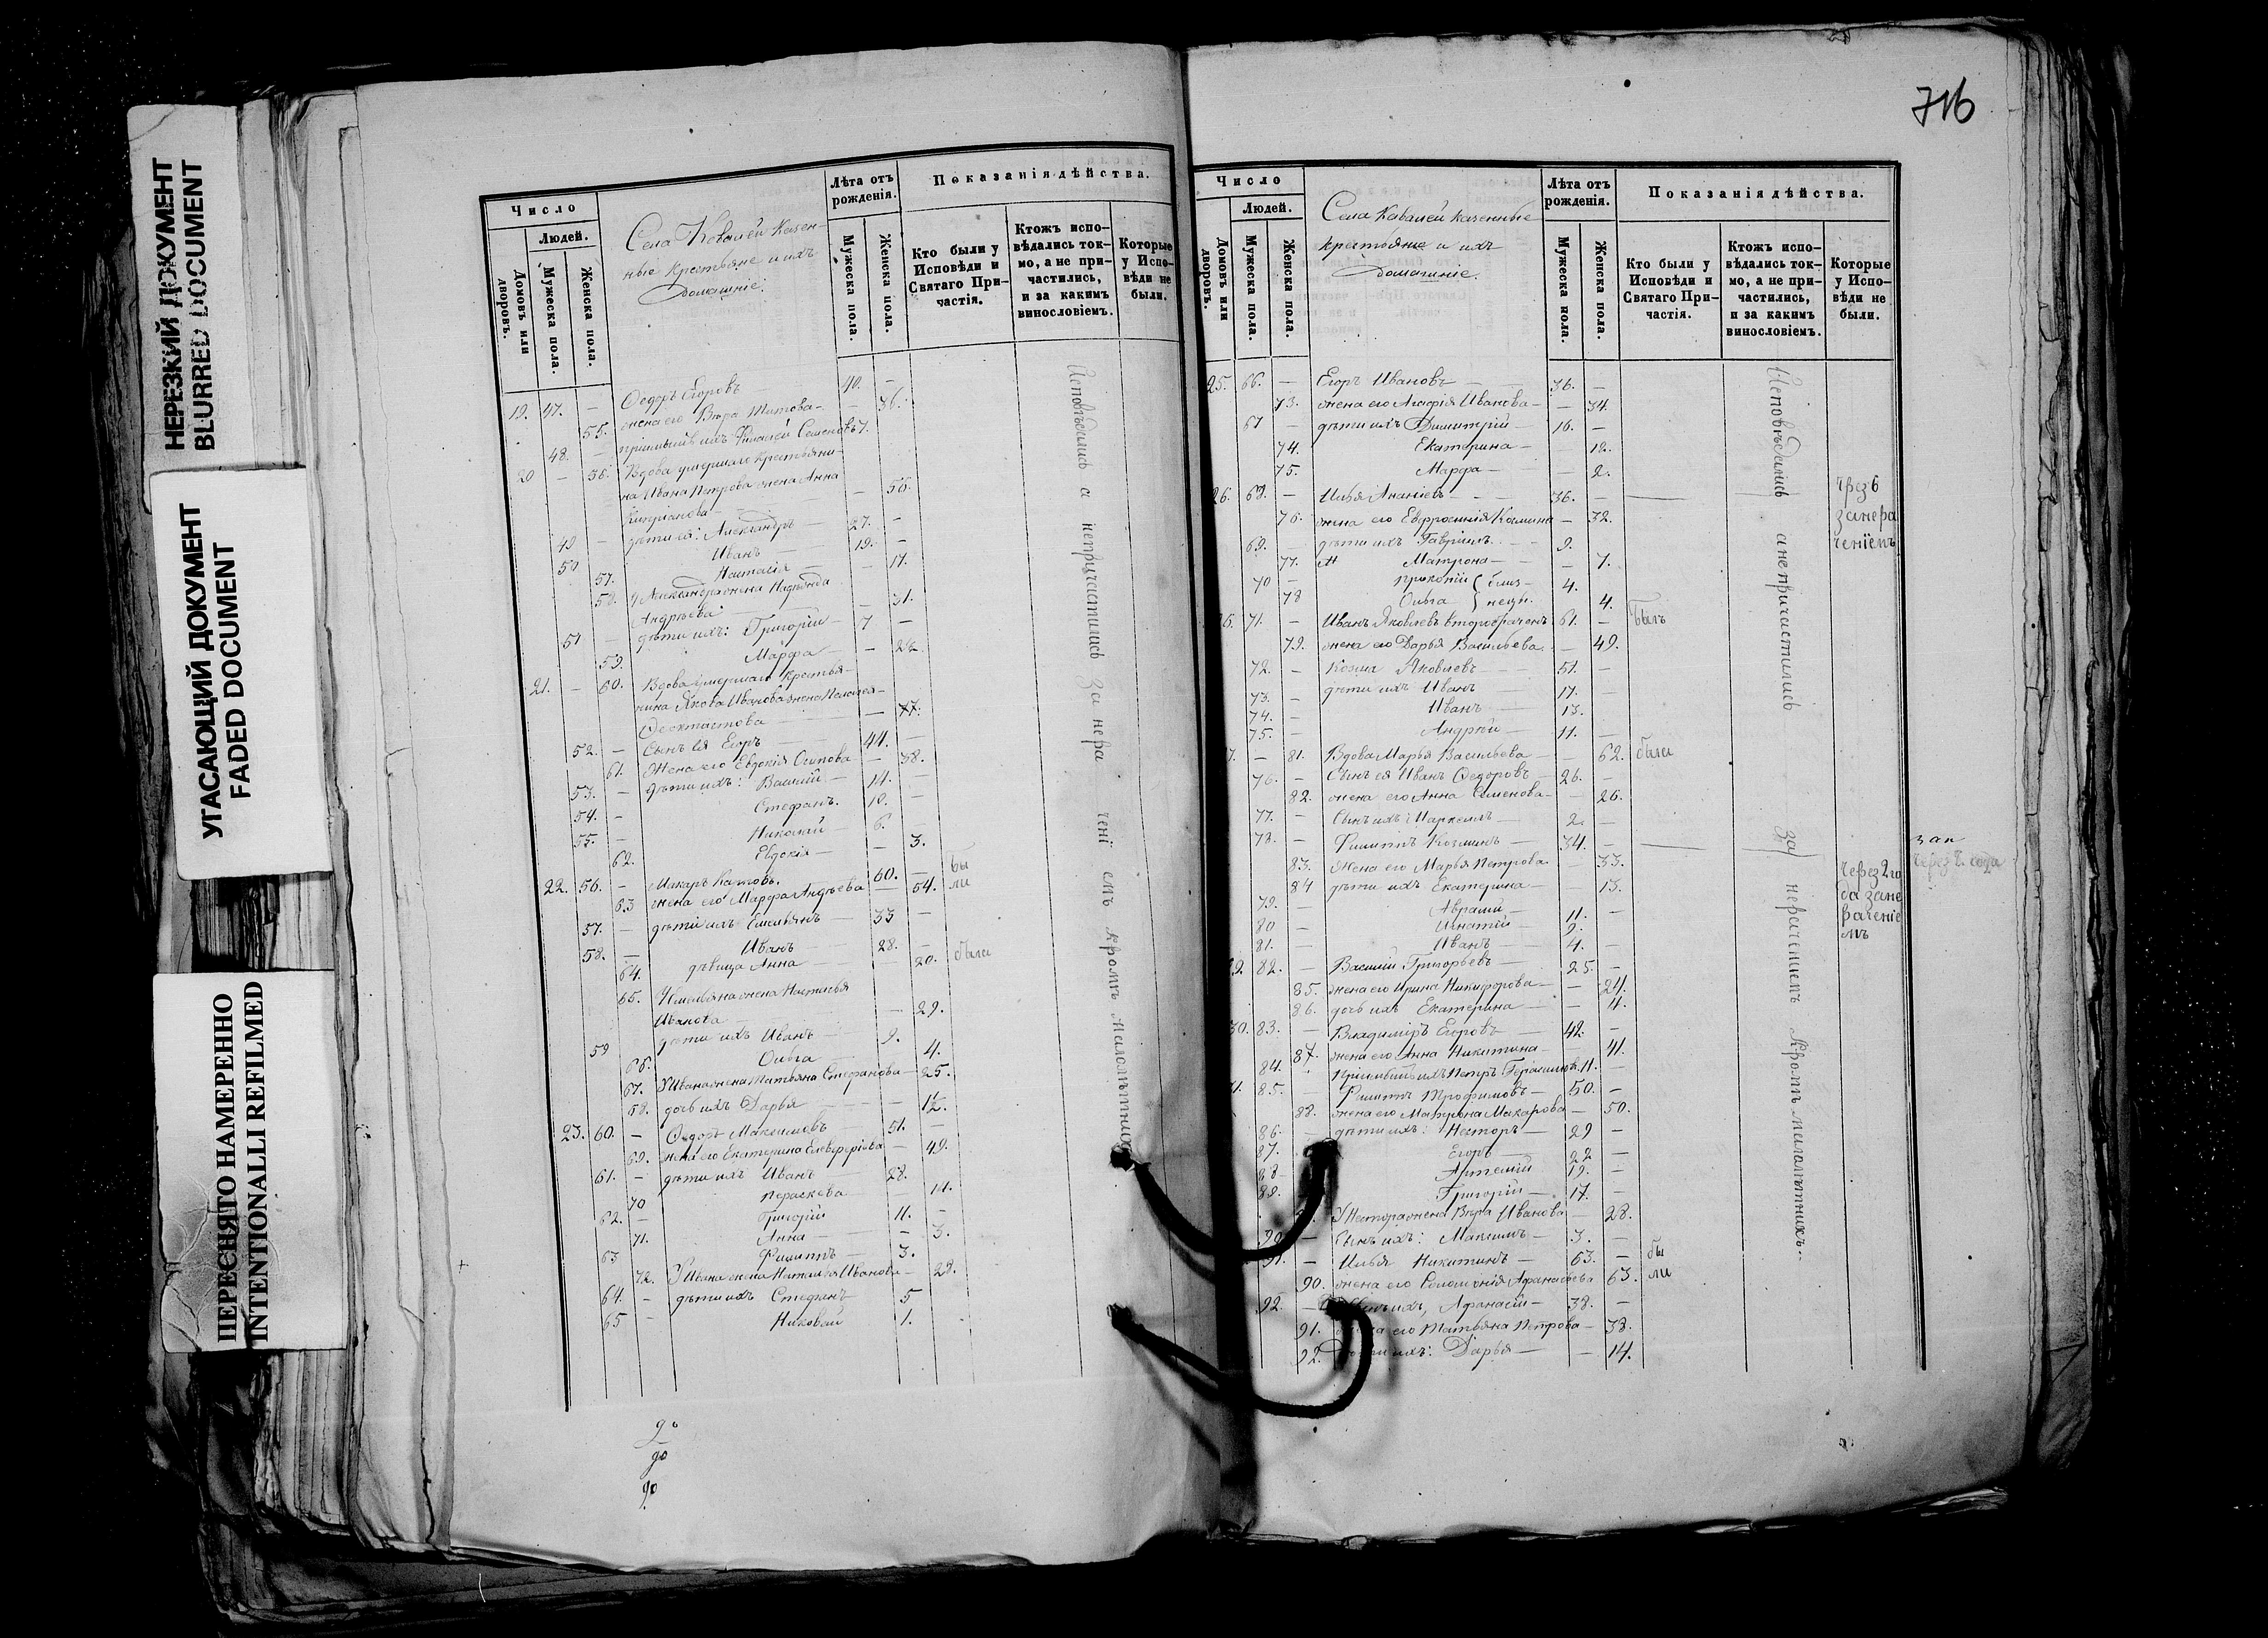 НЕРЕЗКИЙ ДОКУМЕНТ
BLURRED DOCUMENT
УГАСАЮЩИЙ ДОКУМЕНТ
FADED DOCUMENT
ПЕРЕСНЯТО НАМЕРЕННО
INTENTIONALLI REFILMED
Число
Людей.
Домовъ или дворовъ.
Мужеска пола.
Женска пола.
Села Ковалей казен-
ные крестьяне и ихъ
домашніе.
Лѣта отъ рожденія.
Мужеска пола.
Женска пола.
Показанія дѣйства.
Кто были у Исповѣди и Святаго При-частія.
Ктожъ испо-вѣдались ток-мо, а не при-частились, и за какимъ винословіемъ.
Которые у Испо-вѣди не были.
19. 47. — Ѳедоръ Егоровъ 40. —
55. жена его Вѣра Титова — 36.
48. — Семеновъ 7.
20 — 56. Вдова умершаго крестьяни-
на Ивана Петрова жена Анна
Кипріанова — 56.
49 — дѣти ея: Александръ — 27. —
50 Иванъ 19. —
57. Настасія — 17.
58. У Александра жена Надежда
Андрѣева — 31.
51 — дѣти ихъ: Григорій — 7 —
59. Марфа —
21. — 60. Вдова умершаго крестья-
нина Якова Иванова жена Пелагея
Ѳеоктистова — 77.
52. — Сынъ ея Егоръ 44. —
61. Жена его Евдокія Осипова — 38.
53. — дѣти ихъ: Василій — 14. —
54. — Стефанъ. 10. —
55. — Николай 6. —
62. Евдокія — 3.
22. 56. — Макаръ 60. — бы
63 жена его Марфа Андрѣева — 54. ли
57. — дѣти ихъ Емельянъ — 33 —
58. — Иванъ — 28. —
64. дѣвица Анна — 20. была
65. У Емельяна жена Настасья
Иванова — 29.
59 дѣти ихъ Иванъ 9.
66. Ольга — 4.
67. У Ивана жена Татьяна Стефанова — 25.
68. дочь ихъ Дарья — 1½.
23. 60. — Ѳедоръ Максимовъ — 51. —
69. жена его Екатерина Елевферіева — 49.
61. — дѣти ихъ Иванъ 28.
70 Параскева — 14.
62. — Григорій 11. —
71. Анна — 3.
63 Филиппъ — 3.
72. У Ивана жена Наталья Иванова — 29.
64. — дѣти ихъ Стефанъ 5
65 — Николай 1.
Исповѣдались а непричастились за нера чені емъ кромѣ малолѣтнихъ
716
Число
Людей.
Домовъ или дворовъ.
Мужеска пола.
Женска пола.
Села Ковалей казенные
крестьяне и ихъ
домашніе.
Лѣта отъ рожденія.
Мужеска пола.
Женска пола.
Показанія дѣйства.
Кто были у Исповѣди и Святаго При-частія.
Ктожъ испо-вѣдались ток-мо, а не при-частились, и за какимъ винословіемъ.
Которые у Испо-вѣди не были.
25. 66. — Егоръ Ивановъ 36. —
73. жена его Агафія Иванова — 34.
67 — дѣти ихъ Димитрій — 16. —
74. Екатерина — 12.
75. Марфа — 2.
26. 68. — Илья Ананіевъ — 36. —
76. жена его Евфросинія Козмина — 32.
69. — дѣти ихъ Гавріилъ. 9.
77. Матрона — 7.
70 — Прокопій близ- 4.
78 Ольга нецы. 4.
71. — Иванъ Яковлевъ второбраченъ 61. — былъ
79. жена его Дарья Васильева — 49.
72. — Козма Яковлевъ 51. —
73. — дѣти ихъ Иванъ 17. —
74. — Иванъ 13.
75. — Андрей — 11. —
— 81. Вдова Марья Васильева — 62. была
76. — Сынъ ея Иванъ Ѳедоровъ — 26. —
82. жена его Анна Семенова — 26.
77. — Сынъ ихъ 2. —
78. — Филиппъ Козминъ — 34. —
83. Жена его Марья Петрова — 33.
84 дѣти ихъ Екатерина — 13.
79. — Аврамій — 11. —
80 — Игнатій — 9.
81. — Иванъ — 4. —
82. — Василій Григорьевъ — 25. —
85. жена его Ирина Никифорова — 24.
86. дочь ихъ Екатерина — 4.
30. 83. — Владиміръ Егоровъ — 42. —
87. жена его Анна Никитина — 41.
84. Петръ Герасимовъ 11. —
85. — Филиппъ Трофимовъ — 50. —
88. жена его Матрона Макарова — 50.
86. — дѣти ихъ: Несторъ — 29 —
87. Егоръ 22 —
88 Артемій 19. —
89. Григорій — 17. —
У Нестора жена Вѣра Иванова — 28.
90 — Сынъ ихъ: Максимъ — 3. —
91. — Илья Никитинъ — 63. — бы
90. жена его Соломонія Афанасьева 63. ли
92. — Сынъ ихъ, Афанасій — 38. —
91. жена его Татьяна Петрова — 38.
92. Дѣти ихъ: Дарья — — 14.
Исповѣдались а непричастились за нераченіемъ кромѣ малолѣтнихъ.
чрез 6
занера
ченіемъ
Через 2 го
да зане
раченіе
мъ
зан
через 2. года